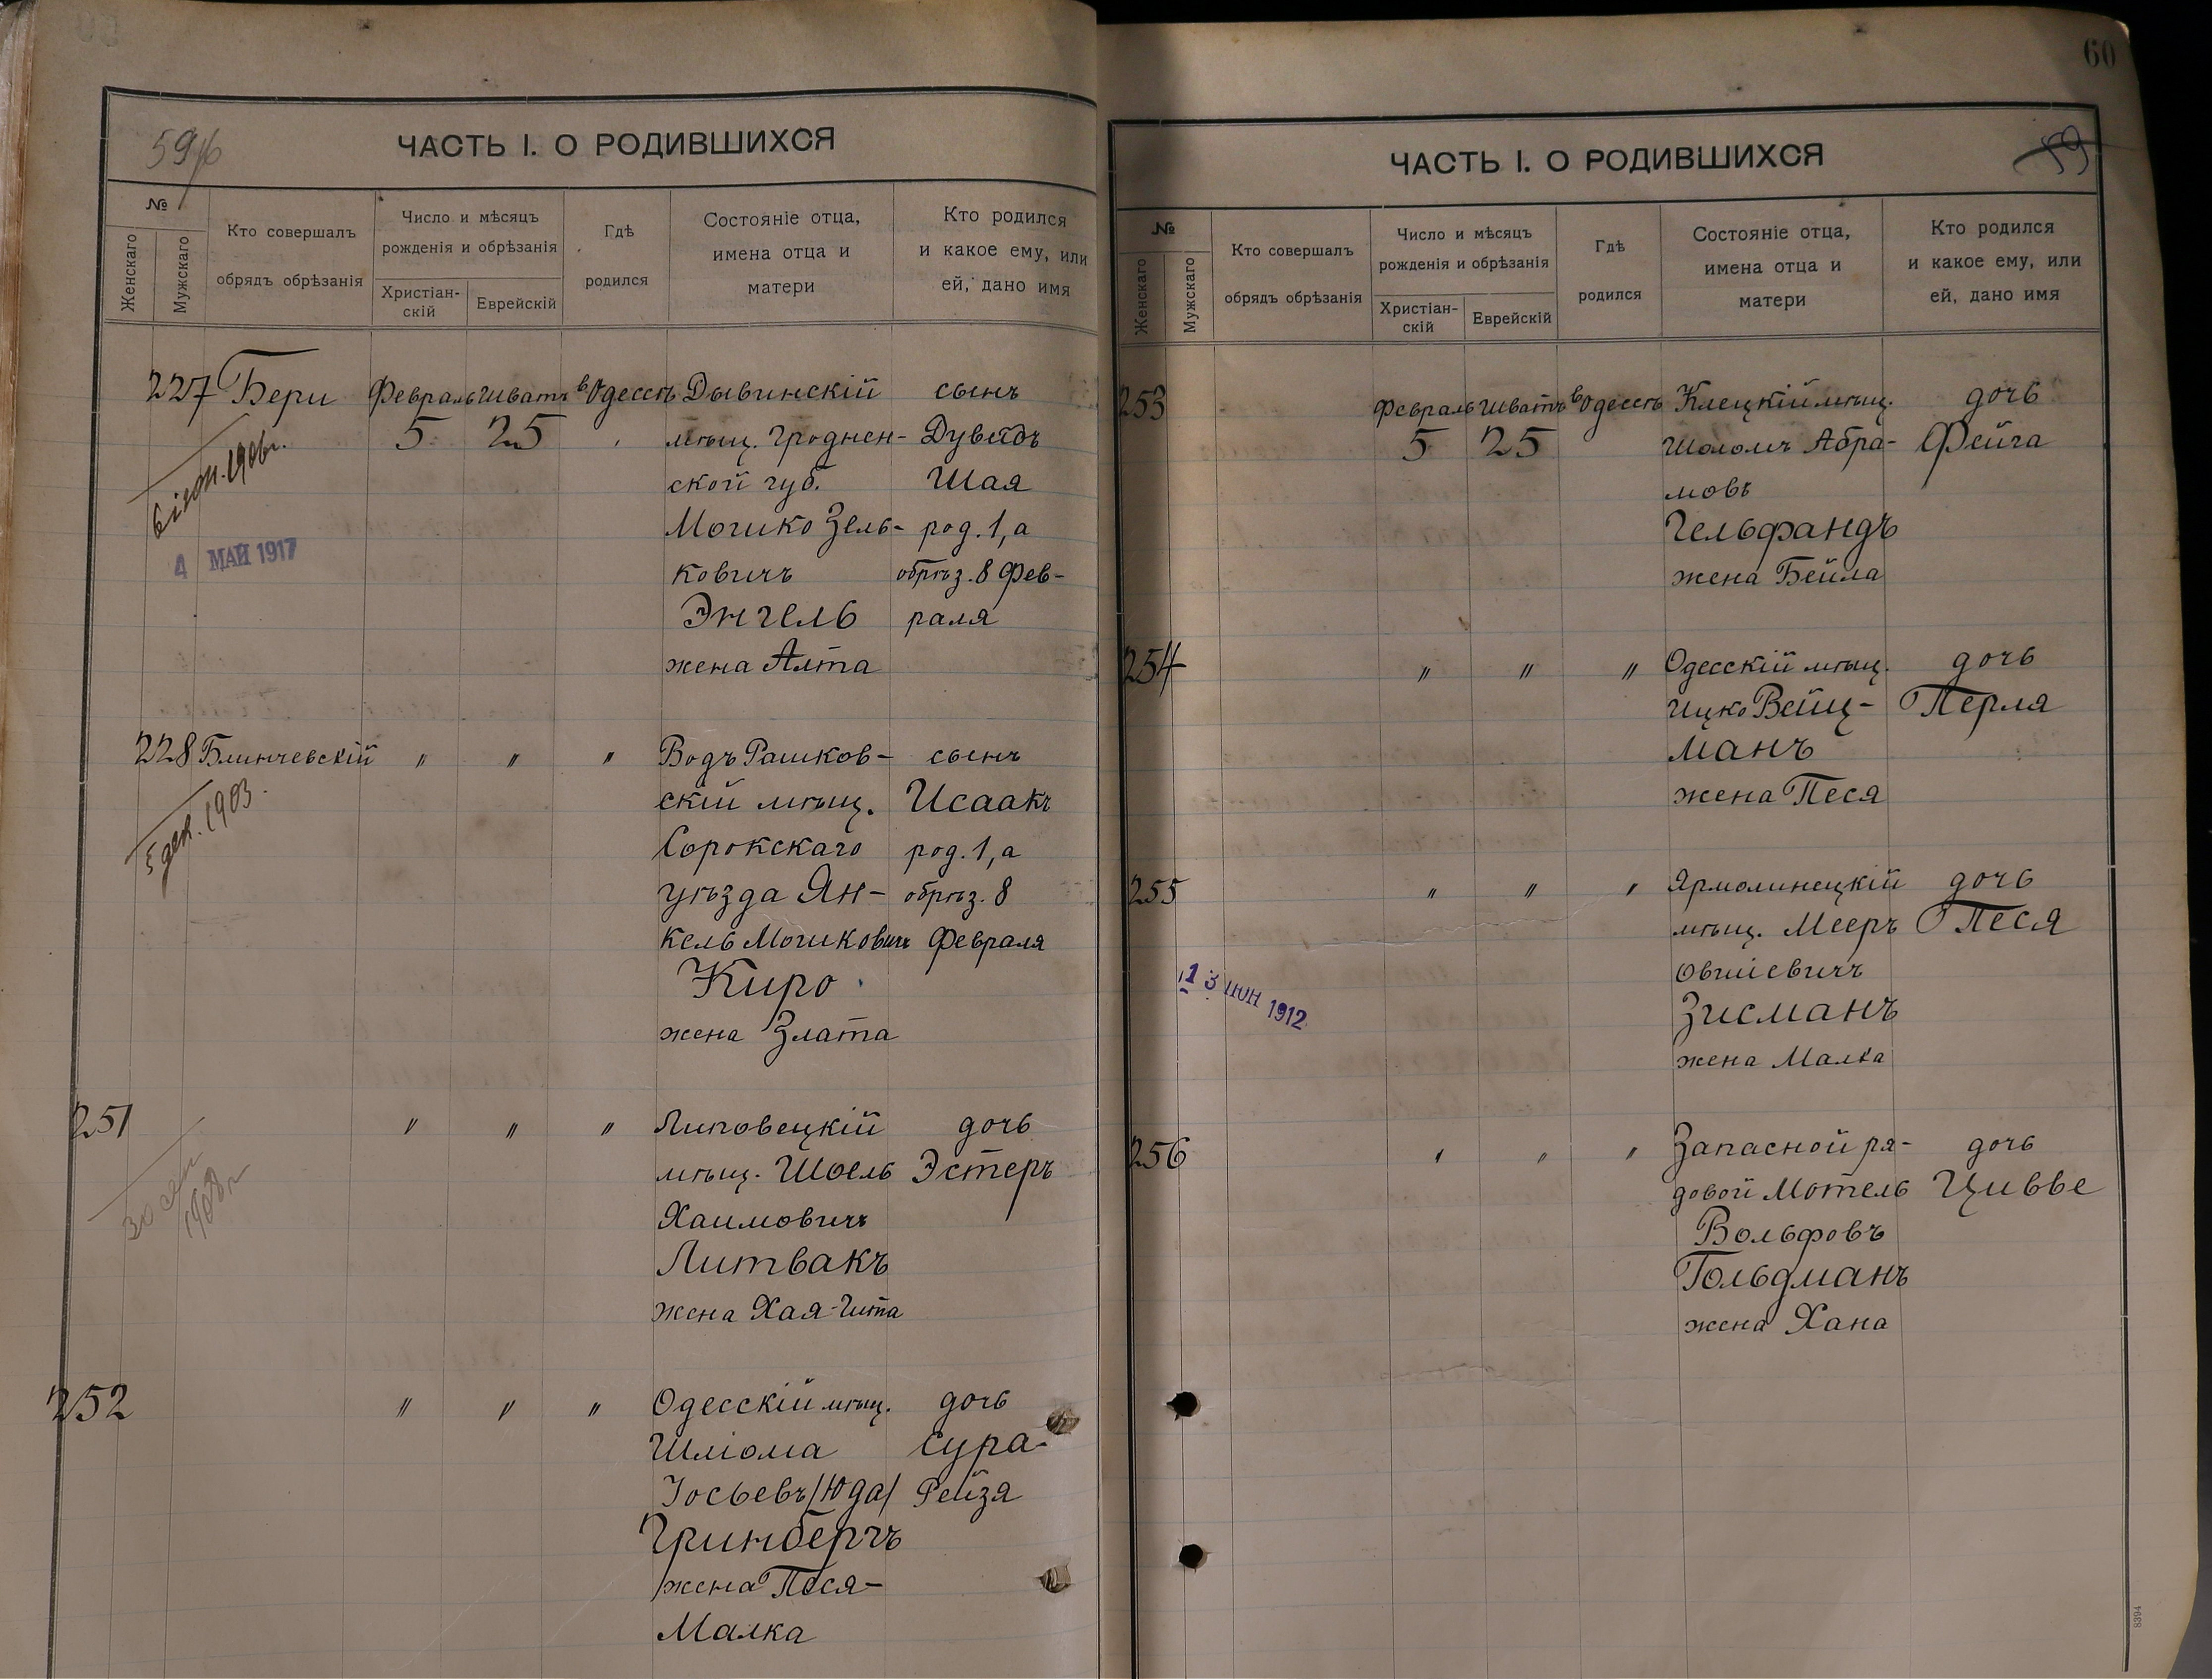 59/б
ЧАСТЬ I. О РОДИВШИХСЯ
№
Женскаго
Мужскаго
Кто совершалъ
обрядъ обрѣзанія
Число и мѣсяцъ
рожденія и обрѣзанія
Христіан-
скій
Еврейскій
Гдѣ
родился
Состояніе отца,
имена отца и
матери
Кто родился
и какое ему, или
ей, дано имя
227 Бери Февраль Шватъ в Одессѣ Дывинскій сынъ
5 25 мѣщ. Гроднен- Дувидъ
ской губ. Шая
Мошко Зель- род. 1, а
ковичъ обрѣз. 8 Фев-
Энгель раля
жена Алта
1906г.
4 МАЙ 1917
228 Блинчевскій " " " Водъ Рашков- сынъ
скій мѣщ. Исаакъ
Сорокскаго род. 1, а
уѣзда Ян- обрѣз. 8
кель Мошковичъ Февраля
Киро
жена Злата
5 дек. 1903.
251 " " " Липовецкій дочь
мѣщ. Шоель Эстеръ
Хаимовичъ
Литвакъ
жена Хая-Гита
30 сен
1908 г
252 " " " Одесскій мѣщ. дочь
Шліома Сура-
Іосьевъ /Юда/ Рейзя
Гринбергъ
жена Песя-
Малка
60
ЧАСТЬ I. О РОДИВШИХСЯ
59
№
Женскаго
Мужскаго
Кто совершалъ
обрядъ обрѣзанія
Число и мѣсяцъ
рожденія и обрѣзанія
Христіан-
скій
Еврейскій
Гдѣ
родился
Состояніе отца,
имена отца и
матери
Кто родился
и какое ему, или
ей, дано имя
253 Февраль Шватъ в Одессѣ Клецкій мѣщ. дочь
5 25 Шоломъ Абра- Фейга
мовъ
Гельфандъ
жена Бейла
254 " " " Одесскій мѣщ. дочь
Ицко Вейц- Перля
манъ
жена Песя
255 " " " Ярмолинецкій дочь
мѣщ. Мееръ Песя
Овшіевичъ
Зисманъ
жена Малка
13 ІЮН 1912
256 " " " Запасной ря- дочь
довой Мотель Цивве
Вольфовъ
Гольдманъ
жена Хана
8394